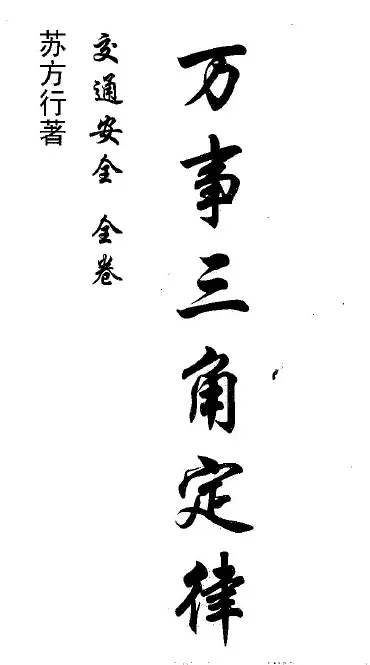 万事三角定律
交通安全 全卷
苏方行著